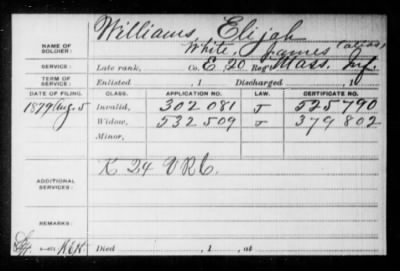 Williams, Elijah
NAME OF SOLDIER: White, James (alias)
SERVICE: Late rank, Co. E 20 Reg't Mass. Inf.
TERM OF SERVICE: Enlisted , 1 Discharged , 1
DATE OF FILING. CLASS. APPLICATION NO. LAW. CERTIFICATE NO.
1879 Aug. 5 Invalid, 302 081 J 525 790
Widow, 532 509 J 379 802
Minor,
ADDITIONAL SERVICES: K 24 VRC.
REMARKS:
Died , 1 , at